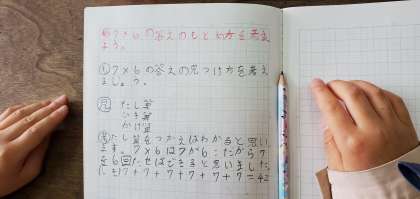 め7×6の答えのもとめ方を考え
よう。
①7×6の答えの見つけ方を考え
ましょう。
見 たし算
ひき算
かけ算
考たし算をつかえばわかると思い
ます。7×6は7が6こだから7
を6回たせばできると思いました。
しき7+7+7+7+7+7=42